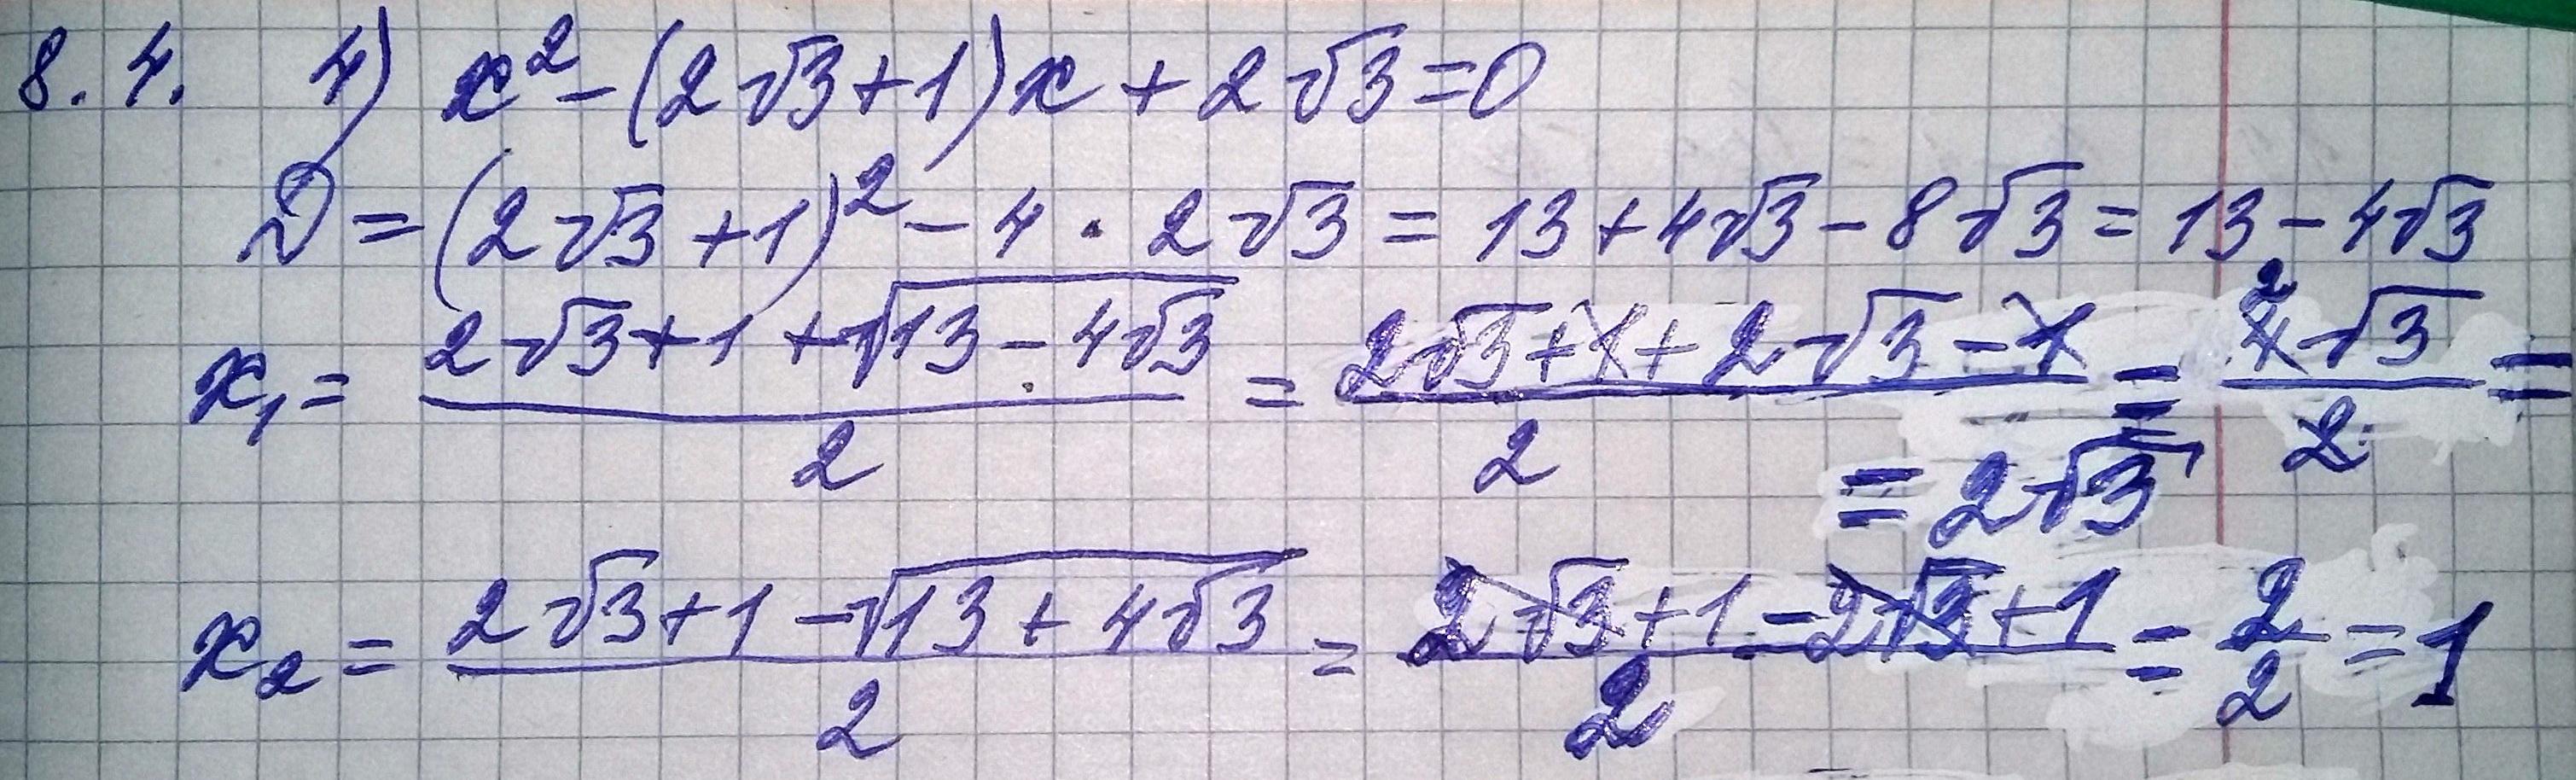 8.4. 4) x² - (2√3+1)x + 2√3 = 0
D = (2√3+1)² - 4 · 2√3 = 13 + 4√3 - 8√3 = 13 - 4√3
x₁ = (2√3+1+√(13-4√3))/2 = (2√3+1+2√3-1)/2 = (4√3)/2 =
= 2√3
x₂ = (2√3+1-√(13+4√3))/2 = (2√3+1-2√3+1)/2 = 2/2 = 1